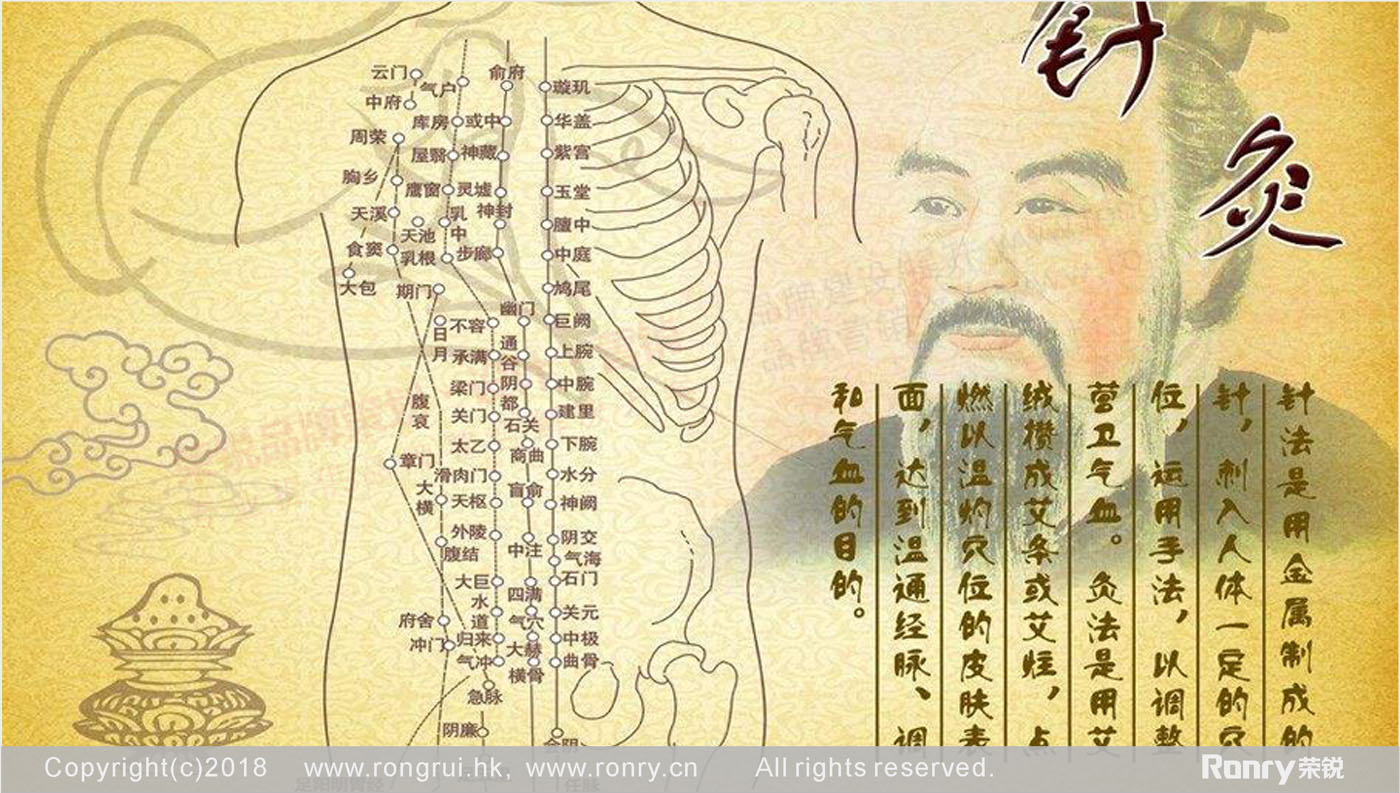 针灸
针法是用金属制成的
针，刺入人体一定的穴
位，运用手法，以调整
营卫气血。灸法是用艾
绒攒成艾条或艾炷，点
燃以温灼穴位的皮肤表
面，达到温通经脉、调
和气血的目的。
云门
中府
周荣
胸乡
天溪
食窦
大包
气户
库房
屋翳
鹰窗
天池
乳中
乳根
期门
日月
腹哀
章门
大横
腹结
府舍
冲门
俞府
或中
神藏
灵墟
神封
步廊
不容
承满
梁门
关门
太乙
滑肉门
天枢
外陵
大巨
水道
归来
气冲
急脉
阴廉
幽门
通谷
阴都
石关
商曲
盲俞
中注
四满
气穴
大赫
横骨
璇玑
华盖
紫宫
玉堂
膻中
中庭
鸠尾
巨阙
上脘
中脘
建里
下脘
水分
神阙
阴交
气海
石门
关元
中极
曲骨
会阴
Copyright(c)2018 www.rongrui.hk, www.ronry.cn All rights reserved.
Ronry荣锐